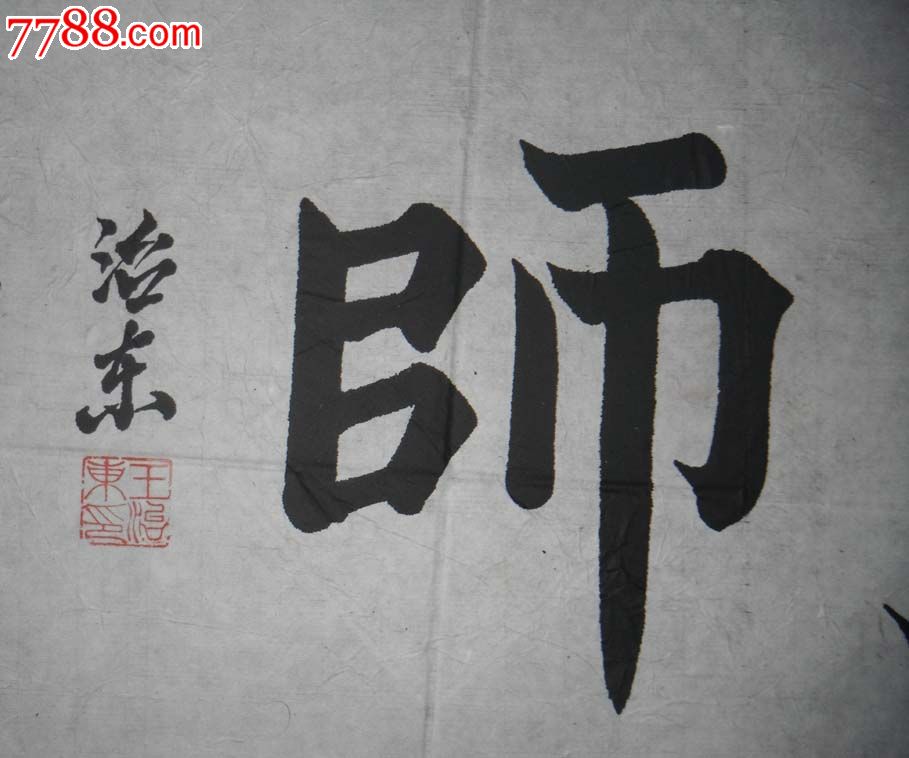 7788.com
師
治东
王治東印